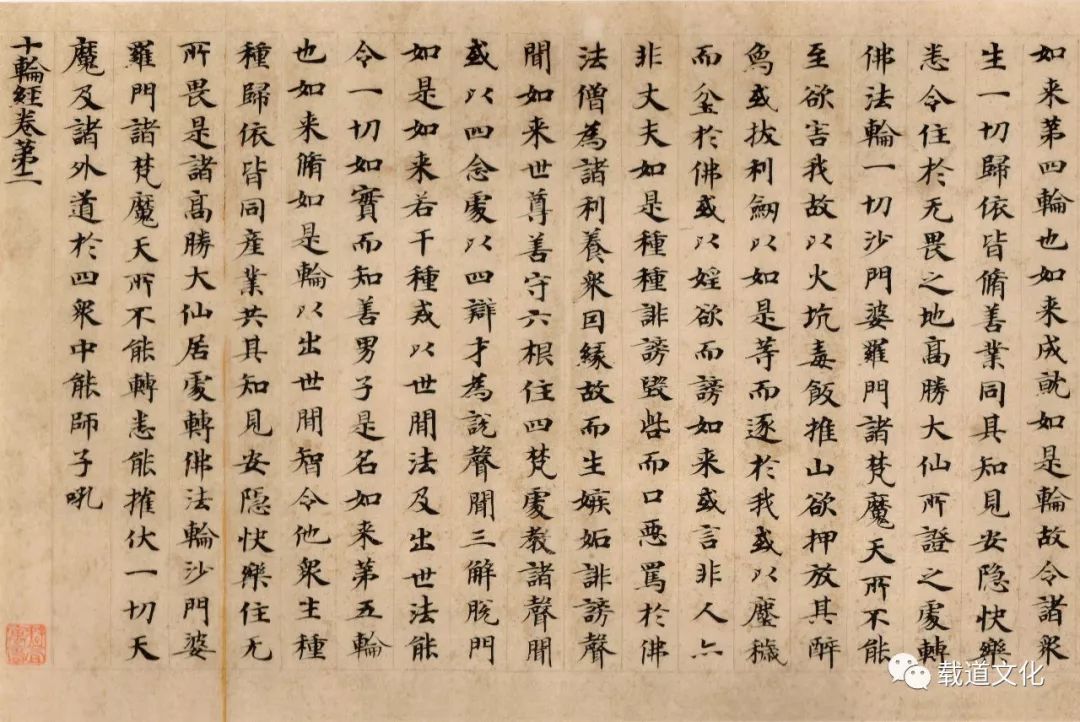 如来第四輪也如来成就如是輪故令諸衆
生一切歸依皆脩善業同其知見安隐快樂
悉令住於无畏之地高勝大仙所證之處轉
佛法輪一切沙門婆羅門諸梵魔天所不能
至欲害我故以火坑毒飯推山欲押放其醉
象或拔利劒以如是等而逐於我或以塵穢
而坌於佛或以婬欲而謗如来或言非人六
非丈夫如是種種誹謗毀呰而口惡罵於佛
法僧為諸利養衆因緣故而生嫉妬誹謗聲
聞如来世尊善守六根住四梵處教諸聲聞
或以四念處以四辯才為說聲聞三解脫門
如是如来若干種戒以世間法及出世法能
令一切如實而知善男子是名如来第五輪
也如来脩如是輪以出世間智令他衆生種
種歸依皆同産業共其知見安隐快樂住无
所畏是諸高勝大仙居處轉佛法輪沙門婆
羅門諸梵魔天所不能轉悉能摧伏一切天
魔及諸外道於四衆中能師子吼
十輪經卷第二
载道文化